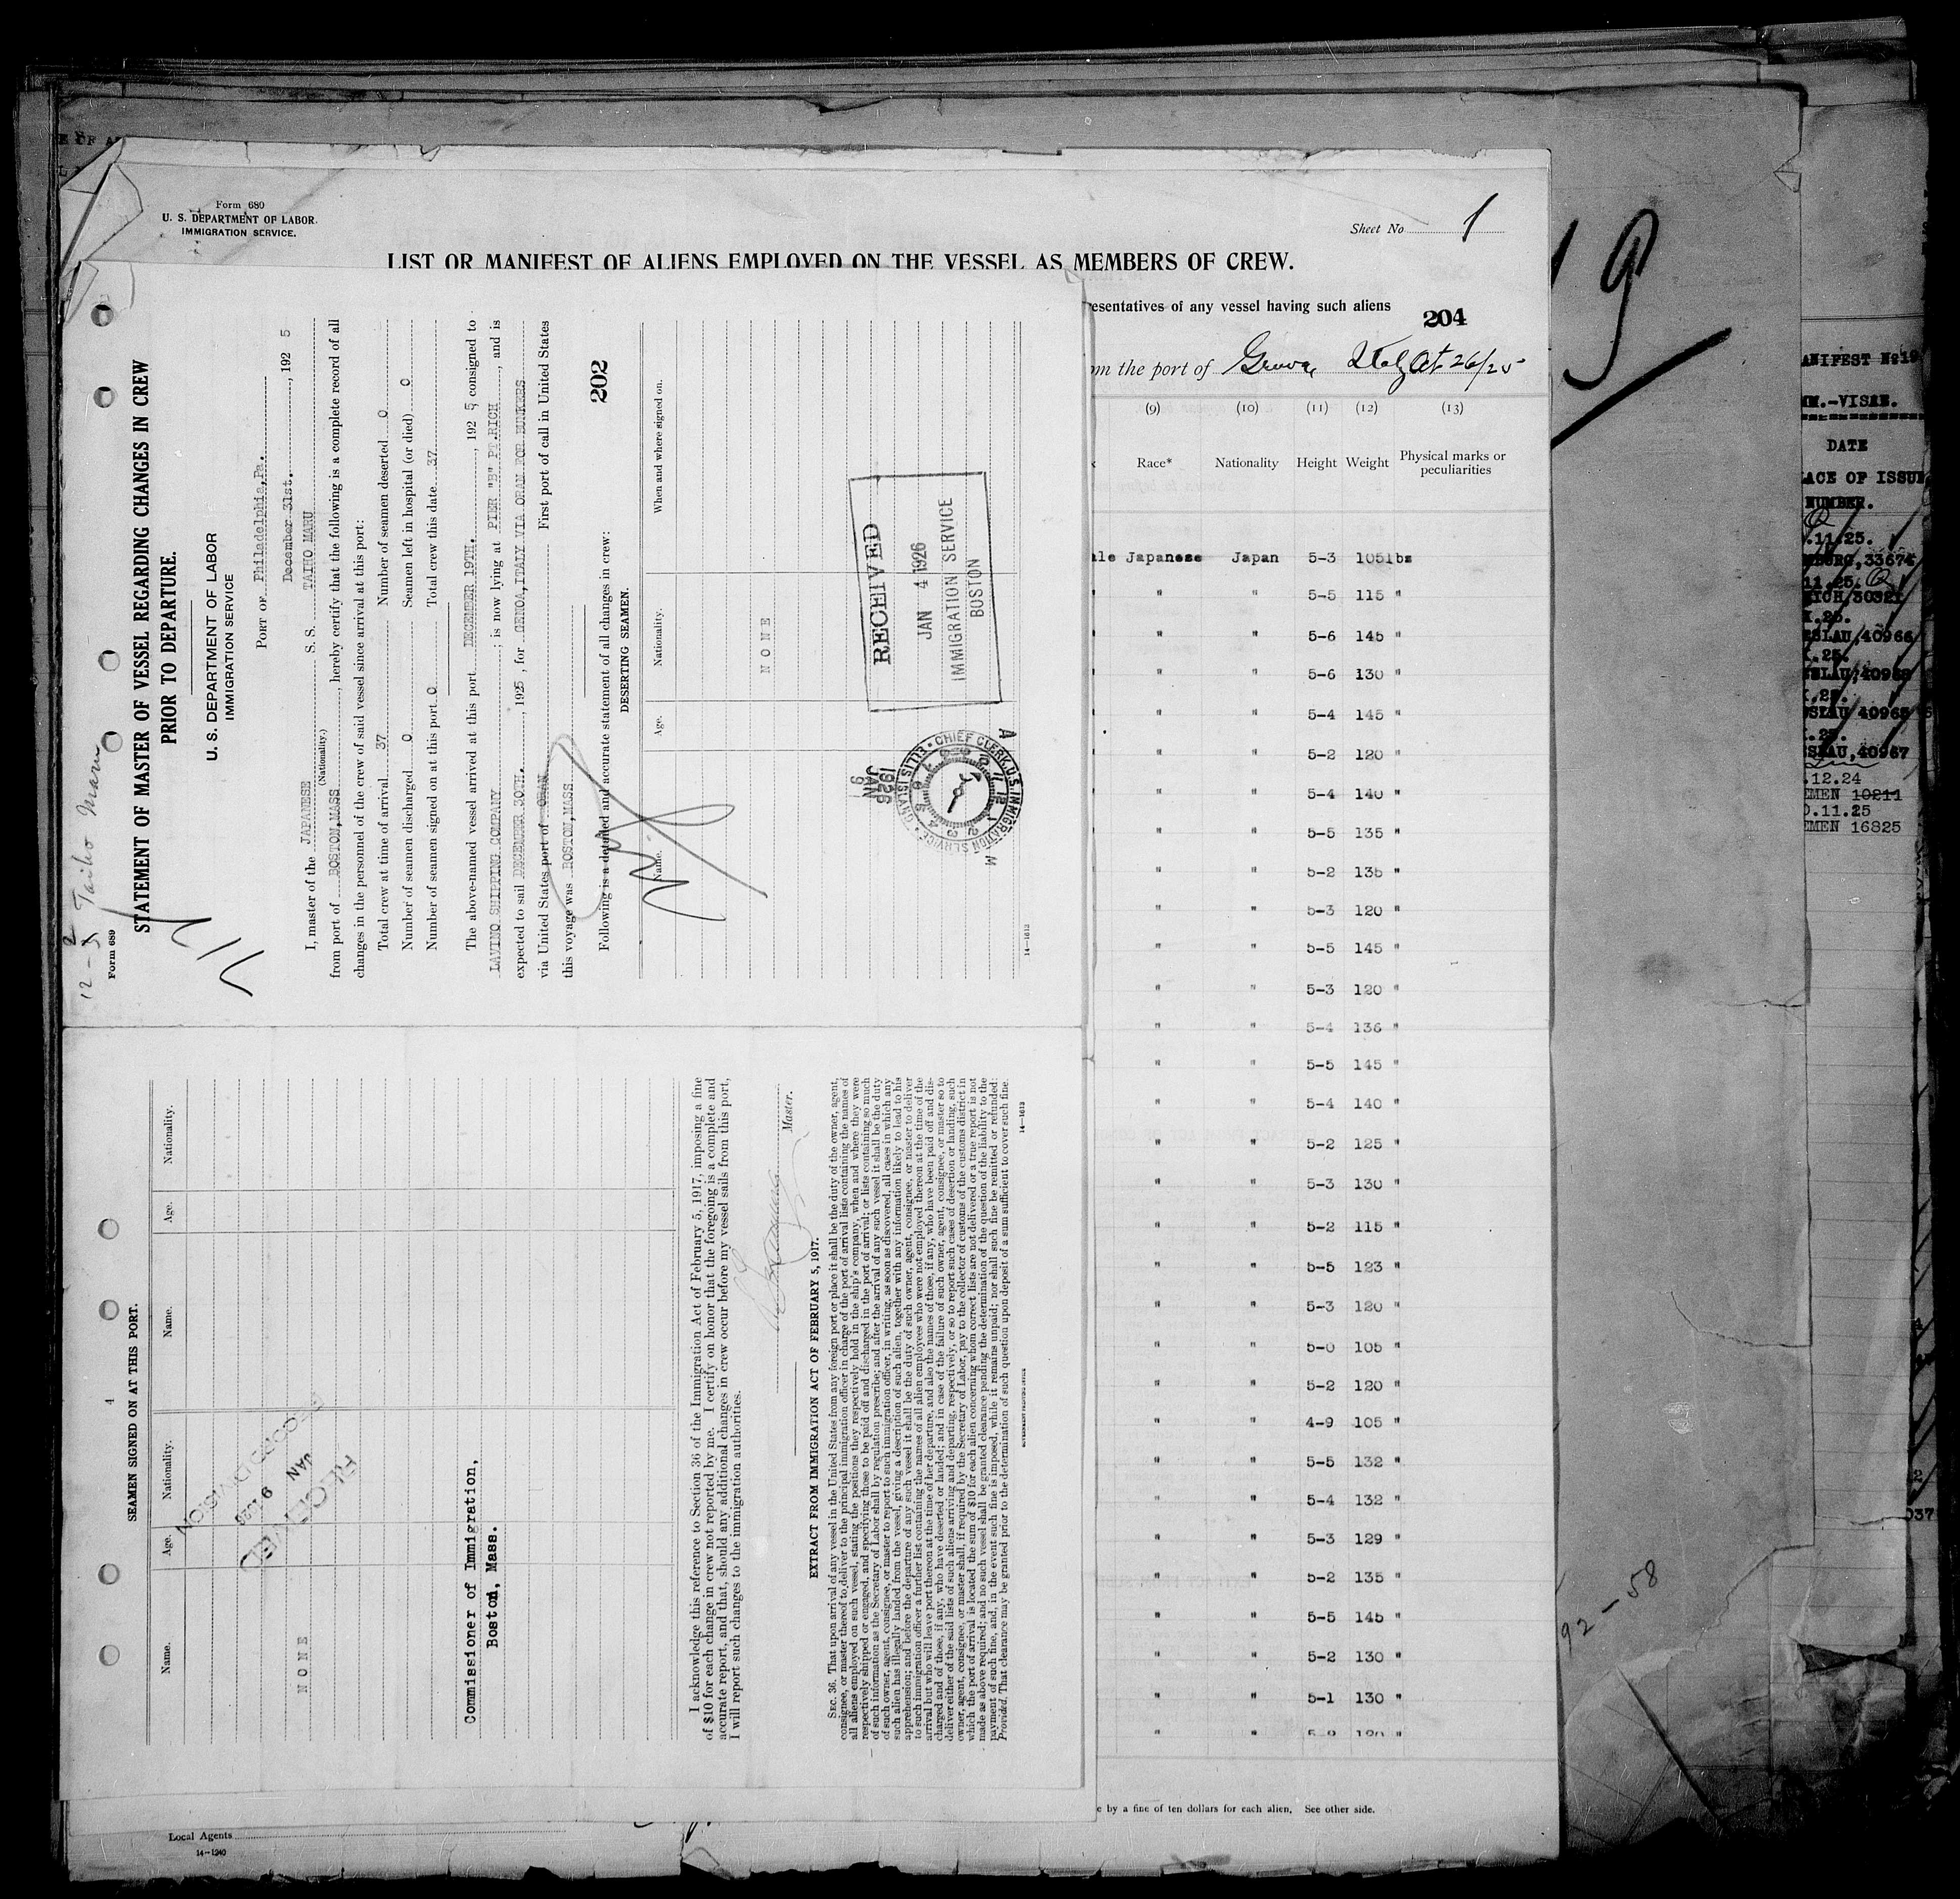 Form 680
U. S. DEPARTMENT OF LABOR
IMMIGRATION SERVICE.
Sheet No 1
LIST OR MANIFEST OF ALIENS EMPLOYED ON THE VESSEL AS MEMBERS OF CREW.
resentatives of any vessel having such aliens
204
19
m the port of Genoa, Italy Oct 26/25
(9) (10) (11) (12) (13)
Race* Nationality Height Weight Physical marks or
peculiarities
ale Japanese Japan 5-3 105lbs
" " " 5-5 115 "
" " 5-6 145 "
" " 5-6 130 "
" " 5-4 145 "
" " 5-2 120 "
" " 5-4 140 "
" " 5-5 135 "
" " 5-2 135 "
" " 5-3 120 "
" " 5-5 145 "
" " 5-3 120 "
" " 5-4 136 "
" " 5-5 145 "
" " 5-4 140 "
" " 5-2 125 "
" " 5-3 130 "
" " 5-2 115 "
" " 5-5 123 "
" " 5-3 120 "
" " 5-0 105 "
" " 5-2 120 "
" " 4-9 105 "
" " 5-5 132 "
" " 5-4 132 "
" " 5-3 129 "
" " 5-2 135 "
" " 5-5 145 "
" " 5-2 130 "
" " 5-1 130 "
e by a fine of ten dollars for each alien. See other side.
Local Agents
14—1240
12 - 2 Taiho Maru
Form 689
STATEMENT OF MASTER OF VESSEL REGARDING CHANGES IN CREW
PRIOR TO DEPARTURE.
U. S. DEPARTMENT OF LABOR
IMMIGRATION SERVICE
PORT OF Philadelphia, Pa.
December 31st., 192 5
I, master of the JAPANESE S. S. TAIHO MARU
(Nationality.)
from port of BOSTON,MASS, hereby certify that the following is a complete record of all
changes in the personnel of the crew of said vessel since arrival at this port:
Total crew at time of arrival 37 Number of seamen deserted 0
Number of seamen discharged 0 Seamen left in hospital (or died) 0
Number of seamen signed on at this port 0 Total crew this date 37
The above-named vessel arrived at this port DECEMBER 19TH., 192 5 consigned to
LAVINO SHIPPING COMPANY; is now lying at PIER "B" PT.RICH, and is
expected to sail DECEMBER 30TH., 1925, for GENOA,ITALY VIA ORAN FOR BUNKERS
via United States port of ORAN First port of call in United States
this voyage was BOSTON,MASS
202
Following is a detailed and accurate statement of all changes in crew:
DESERTING SEAMEN.
Name. Age. Nationality. When and where signed on.
NONE
RECEIVED
JAN 4 1926
IMMIGRATION SERVICE
BOSTON
1926
JAN
9
CHIEF CLERK, U.S. IMMIGRATION SERVICE • ELLIS ISLAND
A
M
14—1613
SEAMEN SIGNED ON AT THIS PORT.
Name. Age. Nationality. Name. Age. Nationality.
NONE
RECEIVED
JAN 9 1926
RECORD DIVISION
Commissioner of Immigration,
Boston, Mass.
I acknowledge this reference to Section 36 of the Immigration Act of February 5, 1917, imposing a fine
of $10 for each change in crew not reported by me. I certify on honor that the foregoing is a complete and
accurate report, and that, should any additional changes in crew occur before my vessel sails from this port,
I will report such changes to the immigration authorities.
Master.
EXTRACT FROM IMMIGRATION ACT OF FEBRUARY 5, 1917.
SEC. 36. That upon arrival of any vessel in the United States from any foreign port or place it shall be the duty of the owner, agent,
consignee, or master thereof to deliver to the principal immigration officer in charge of the port of arrival lists containing the names of
all aliens employed on such vessel, stating the positions they respectively hold in the ship's company, when and where they were
respectively shipped or engaged, and specifying those to be paid off and discharged in the port of arrival; or lists containing so much
of such information as the Secretary of Labor shall by regulation prescribe; and after the arrival of any such vessel it shall be the duty
of such owner, agent, consignee, or master to report to such immigration officer, in writing, as soon as discovered, all cases in which any
such alien has illegally landed from the vessel, giving a description of such alien, together with any information likely to lead to his
apprehension; and before the departure of any such vessel it shall be the duty of such owner, agent, consignee, or master to deliver
to such immigration officer a further list containing the names of all alien employees who were not employed thereon at the time of the
arrival but who will leave port thereon at the time of her departure, and also the names of those, if any, who have been paid off and dis-
charged and of those, if any, who have deserted or landed; and in case of the failure of such owner, agent, consignee, or master so to
deliver either of the said lists of such aliens arriving and departing, respectively, or so to report such cases of desertion or landing, such
owner, agent, consignee, or master shall, if required by the Secretary of Labor, pay to the collector of customs of the customs district in
which the port of arrival is located the sum of $10 for each alien concerning whom correct lists are not delivered or a true report is not
made as above required; and no such vessel shall be granted clearance pending the determination of the question of the liability to the
payment of such fine, and, in the event such fine is imposed, while it remains unpaid; nor shall such fine be remitted or refunded:
Provided, That clearance may be granted prior to the determination of such question upon deposit of a sum sufficient to cover such fine.
14—1613
92-58
ANIFEST No19
MM.-VISAE.
DATE
LACE OF ISSUE
NUMBER.
.11.25.
33675
11.25.
30321
.25.
ESLAU,40966
.25.
40968
.25.
40965
.25.
40967
.12.24
EMEN 10211
0.11.25
EMEN 16825
037